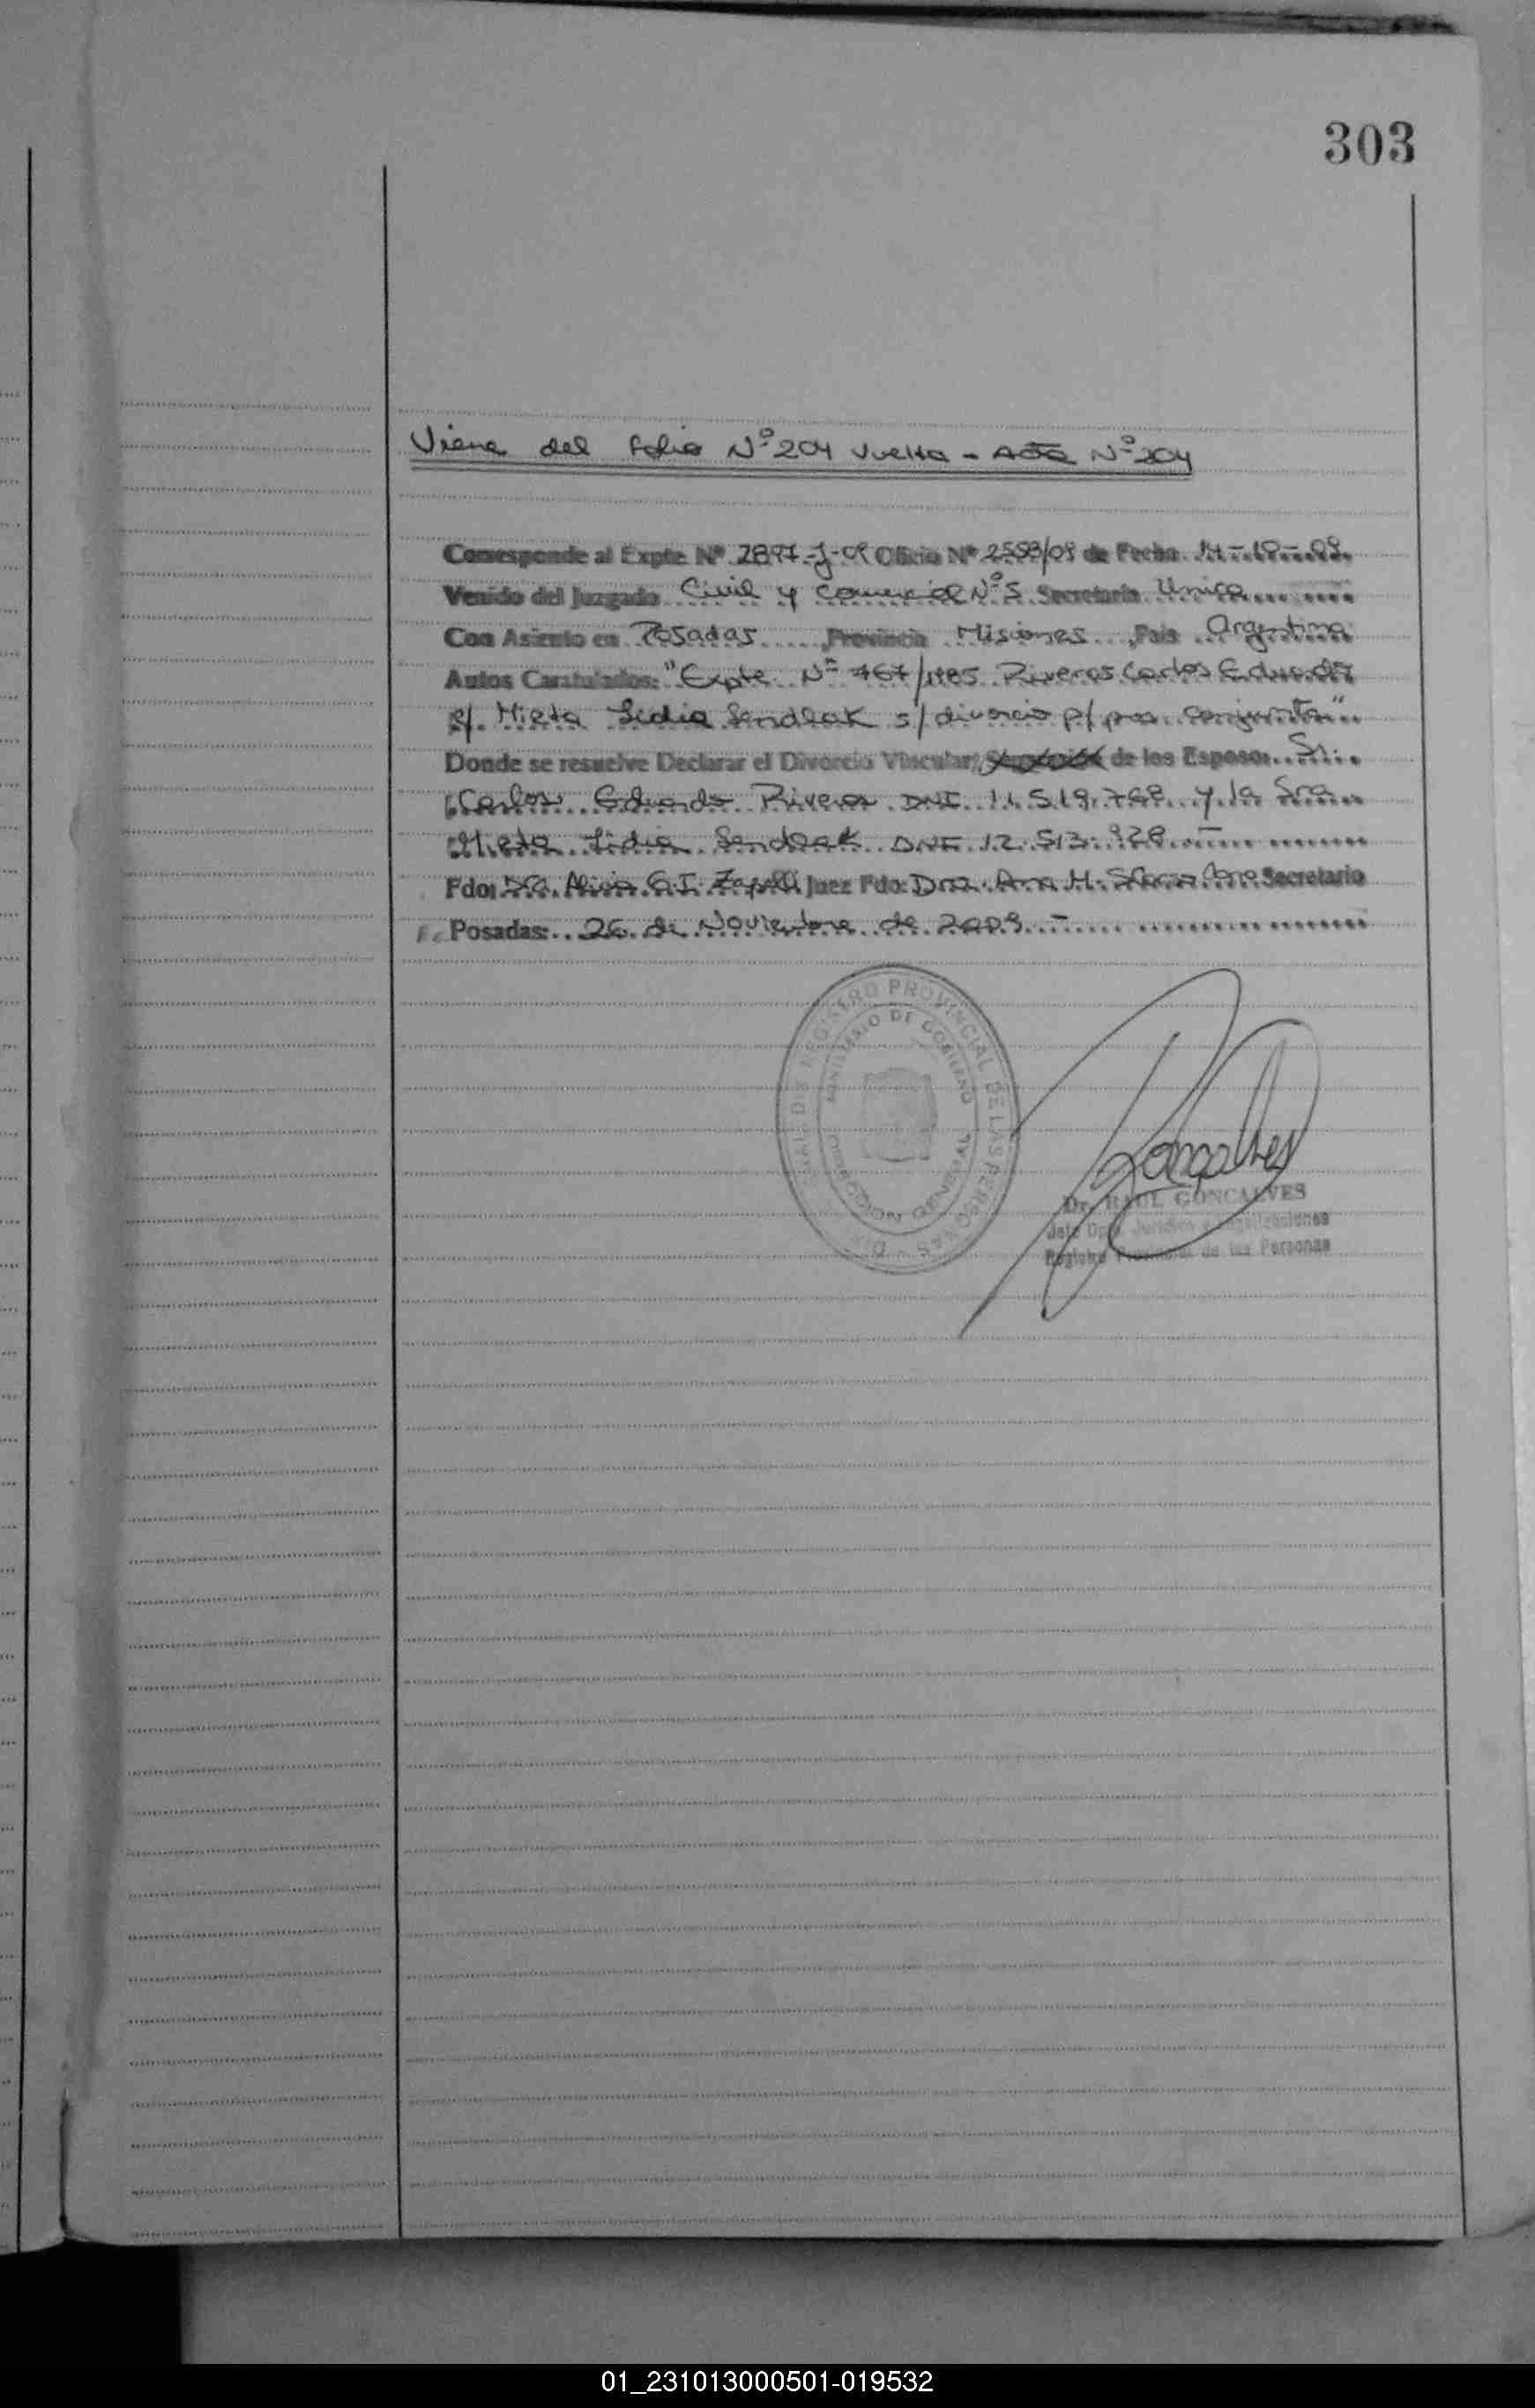 303
Viene del folio Nº 204 vuelta - Acta Nº 204
Corresponde al Expte. Nº 2897-J-09 Oficio Nº 2553/09 de Fecha
Venido del Juzgado Civil y Comercial Nº 5 Secretaria Unica
Con Asiento en Posadas, Provincia Misiones, Pais Argentina
Autos Caratulados: "Expte. Nº 767/1995 Riveros Carlos Eduardo
Mirta Lidia Sendlak s/ divorcio p/ pres. conjunta"
Donde se resuelve Declarar el Divorcio Vincular, de los Esposos Sr.
Carlos Eduardo Riveros DNI. 11.519.768 y la Sra
Mirta Lidia Sendlak DNI. 12.513.928.-
Fdo: Dra. Alicia Juez Fdo: Dra. Ana M. Secretario
Posadas: 26 de Noviembre de 2009.-
REGISTRO PROVINCIAL DE LAS PERSONAS
MINISTERIO DE GOBIERNO
DIRECCION GENERAL
Goncalves
Dr. RAUL GONCALVES
Jefe Dpto. Juridico y Legalizaciones
Registro Provincial de las Personas
01_231013000501-019532